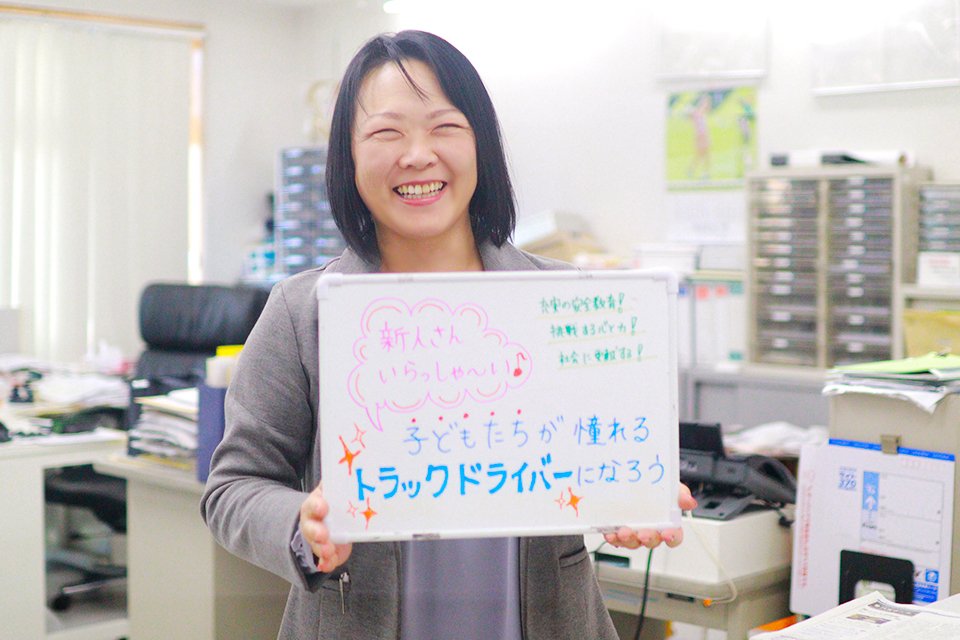 新人さん
いらっしゃ〜い♪
充実の安全教育!
挑戦するパとカ!
社会に貢献する!
子どもたちが憧れる
トラックドライバーになろう